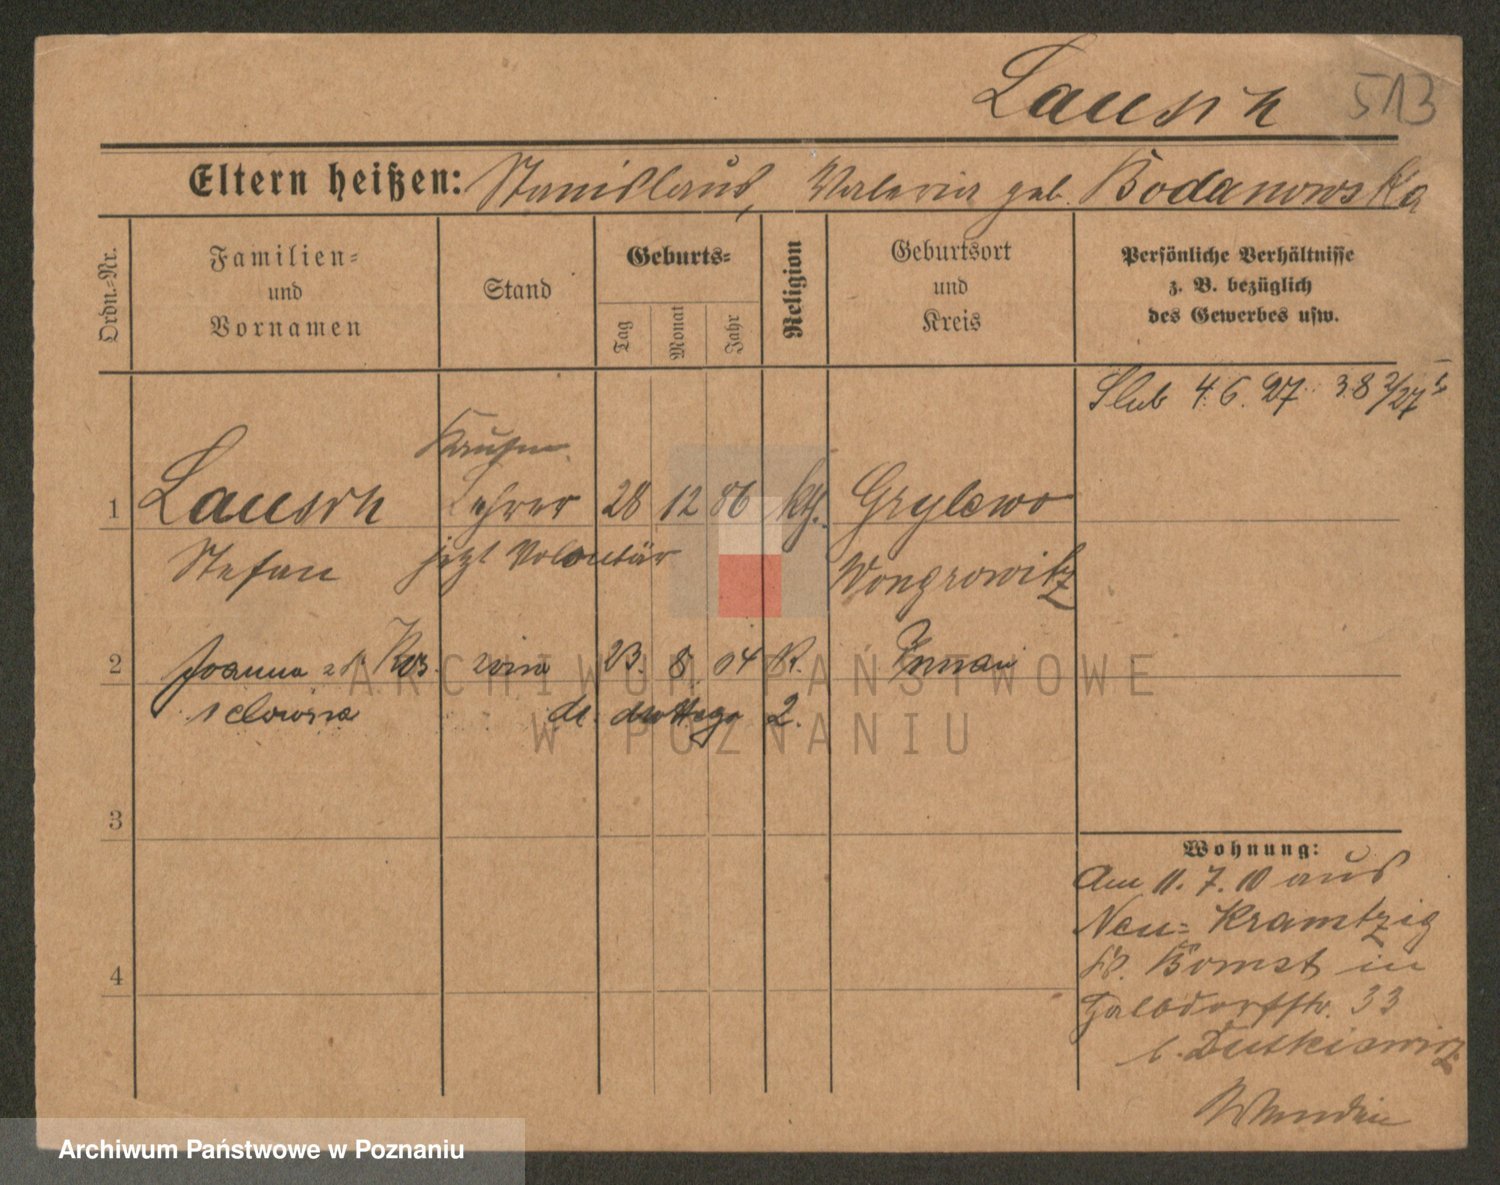 Lausch 513
Eltern heißen: Stanislaus, Valeria geb. Bodanowska
Ordn.-Nr.
Familien- und Vornamen
Stand
Geburts-
Tag
Monat
Jahr
Religion
Geburtsort und Kreis
Persönliche Verhältnisse z. B. bezüglich des Gewerbes usw.
Slub 4.6.27 38 2/27
Kaufm.
1 Lausch Lehrer 28 12 86 kth. Grylewo
Stefan jetzt Volontär Wongrowitz
2 Joanna zd. 23. 8 04 K.
3
4
Wohnung:
Am 11. 7. 10 aus
Neu-Kramtzig
Kr. Bomst in
33
b. Dutkiewicz
ARCHIWUM PAŃSTWOWE
W POZNANIU
Archiwum Państwowe w Poznaniu